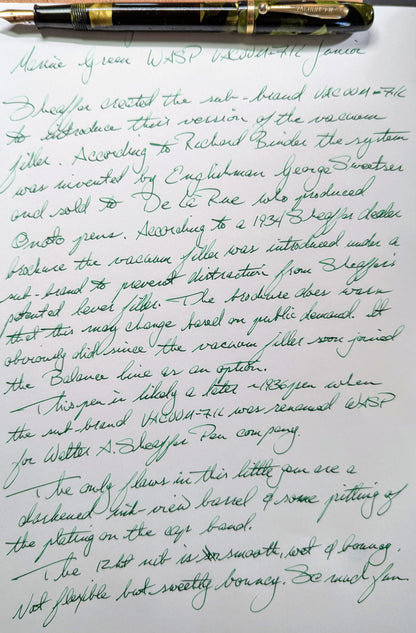 Marine Green WASP VACUUM-FIL Junior
Sheaffer created the sub-brand VACUUM-FIL
to introduce their version of the vacuum
filler. According to Richard Binder the system
was invented by Englishman George Sweetser
and sold to De La Rue who produced
Onoto pens. According to a 1934 Sheaffer dealer
brochure the vacuum filler was introduced under a
sub-brand to prevent distraction from Sheaffer's
patented lever filler. The brochure does warn
that this may change based on public demand. It
obviously did since the vacuum filler soon joined
the Balance line as an option.
This pen is likely a later ~1936 pen when
the sub-brand VACUUM-FIL was renamed WASP
for Walter A. Sheaffer Pen company.
The only flaws in this little pen are a
darkened ink-view barrel & some pitting of
the plating on the cap band.
The 12kt nib is smooth, wet & bouncy.
Not flexible but sweetly bouncy. So much fun